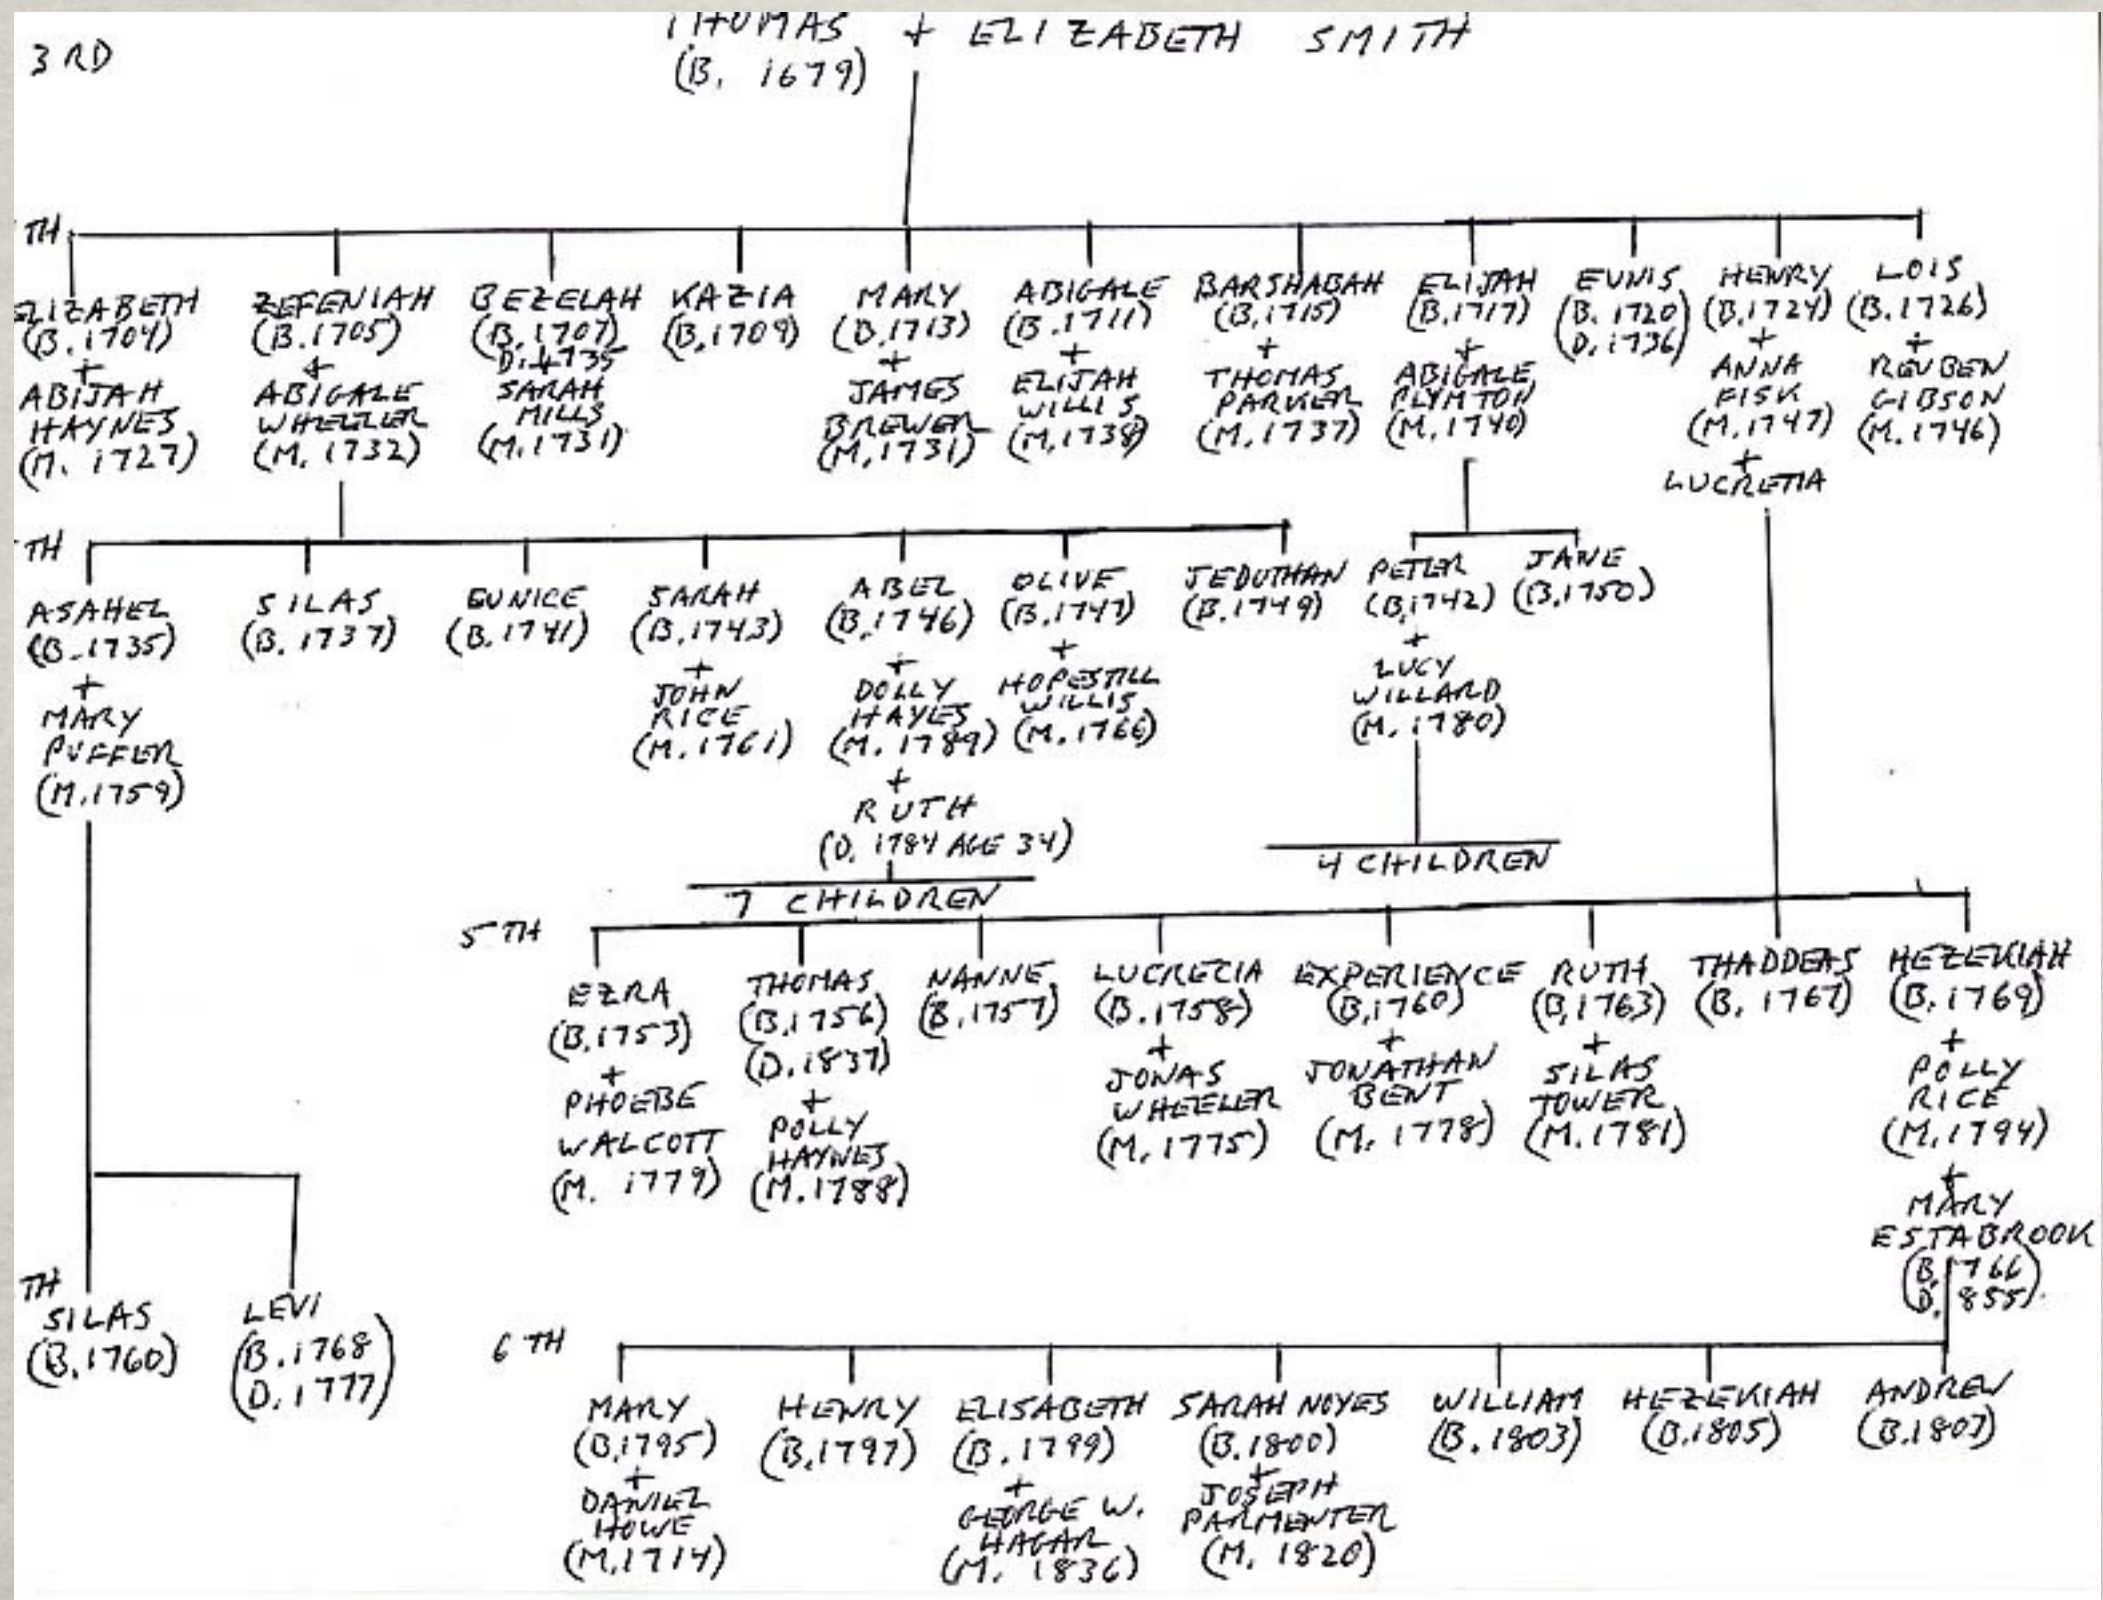 3RD
THOMAS + ELIZABETH SMITH
(B. 1679)
TH
ELIZABETH
(B. 1704)
+
ABIJAH
HAYNES
(M. 1727)
ZEFENIAH
(B. 1705)
+
ABIGALE
WHEELER
(M. 1732)
BEZELAH
(B. 1707)
D. 1735
SARAH
MILLS
(M. 1731)
KAZIA
(B. 1709)
MARY
(B. 1713)
+
JAMES
BREWER
(M. 1731)
ABIGALE
(B. 1711)
+
ELIJAH
WILLIS
BARSHABAH
(B. 1715)
+
THOMAS
PARKER
(M. 1737)
ELIJAH
(B. 1717)
+
ABIGALE
PLYMTON
(M. 1740)
EUNIS
(B. 1720)
D. 1736)
HENRY
(B. 1724)
+
ANNA
FISK
(M. 1747)
+
LUCRETIA
LOIS
(B. 1726)
+
REUBEN
GIBSON
(M. 1746)
TH
ASAHEL
(B. 1735)
+
MARY
PUFFER
(M. 1759)
SILAS
(B. 1737)
EUNICE
(B. 1741)
SARAH
(B. 1743)
+
JOHN
RICE
(M. 1761)
ABEL
(B. 1746)
+
DOLLY
HAYES
(M. 1789)
+
RUTH
(D. 1784 AGE 34)
7 CHILDREN
OLIVE
(B. 1747)
+
HOPESTILL
WILLIS
(M. 1766)
JEDUTHAN
(B. 1749)
PETER
(B. 1742)
+
LUCY
WILLARD
(M. 1780)
4 CHILDREN
JANE
(B. 1750)
5TH
EZRA
(B. 1753)
+
PHOEBE
WALCOTT
(M. 1779)
THOMAS
(B. 1756)
(D. 1837)
+
POLLY
HAYNES
(M. 1788)
NANNE
(B. 1757)
LUCRECIA
(B. 1758)
+
JONAS
WHEELER
(M. 1775)
EXPERIENCE
(B. 1760)
+
JONATHAN
BENT
(M. 1778)
RUTH
(B. 1763)
+
SILAS
TOWER
(M. 1781)
THADDEAS
(B. 1767)
HEZEKIAH
(B. 1769)
+
POLLY
RICE
(M. 1794)
+
MARY
ESTABROOK
(B. 1766
D. 1855)
TH
SILAS
(B. 1760)
LEVI
(B. 1768
D. 1777)
6TH
MARY
(B. 1795)
+
DANIEL
HOWE
(M. 1714)
HENRY
(B. 1797)
ELISABETH
(B. 1799)
+
GEORGE W.
HAGAR
(M. 1836)
SARAH NOYES
(B. 1800)
+
JOSEPH
PARMENTER
(M. 1820)
WILLIAM
(B. 1803)
HEZEKIAH
(B. 1805)
ANDREW
(B. 1807)